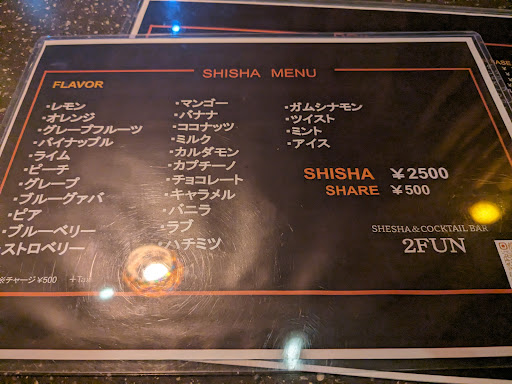 SHISHA MENU
FLAVOR
・レモン
・オレンジ
・グレープフルーツ
・パイナップル
・ライム
・ピーチ
・グレープ
・ブルーグァバ
・ピア
・ブルーベリー
ストロベリー
・マンゴー
・バナナ
・ココナッツ
・ミルク
・カルダモン
・カプチーノ
・チョコレート
・キャラメル
・バニラ
・ラブ
・ハチミツ
・ガムシナモン
・ツイスト
・ミント
・アイス
SHISHA ¥2500
SHARE ¥500
SHESHA & COCKTAIL BAR
2FUN
※チャージ ¥500 +Tax